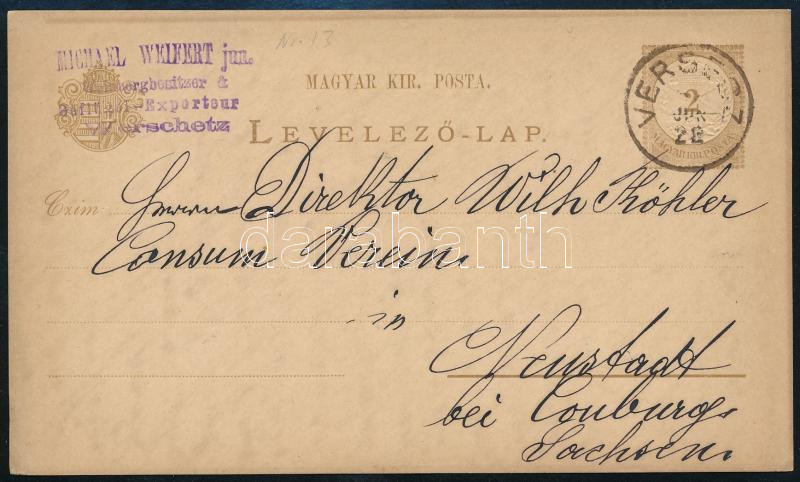 No. 13
MICHAEL WEIFERT jun.
Weinbergbesitzer &
Exporteur
Werschetz
MAGYAR KIR. POSTA.
LEVELEZŐ-LAP.
VERSECZ
2
JUN
28
MAGYAR KIR. POSTA
Czim: Herrn Direktor Wilh Köhler
Consum Verein
in
Neustadt
bei Couburg
Sachsen
darabanth